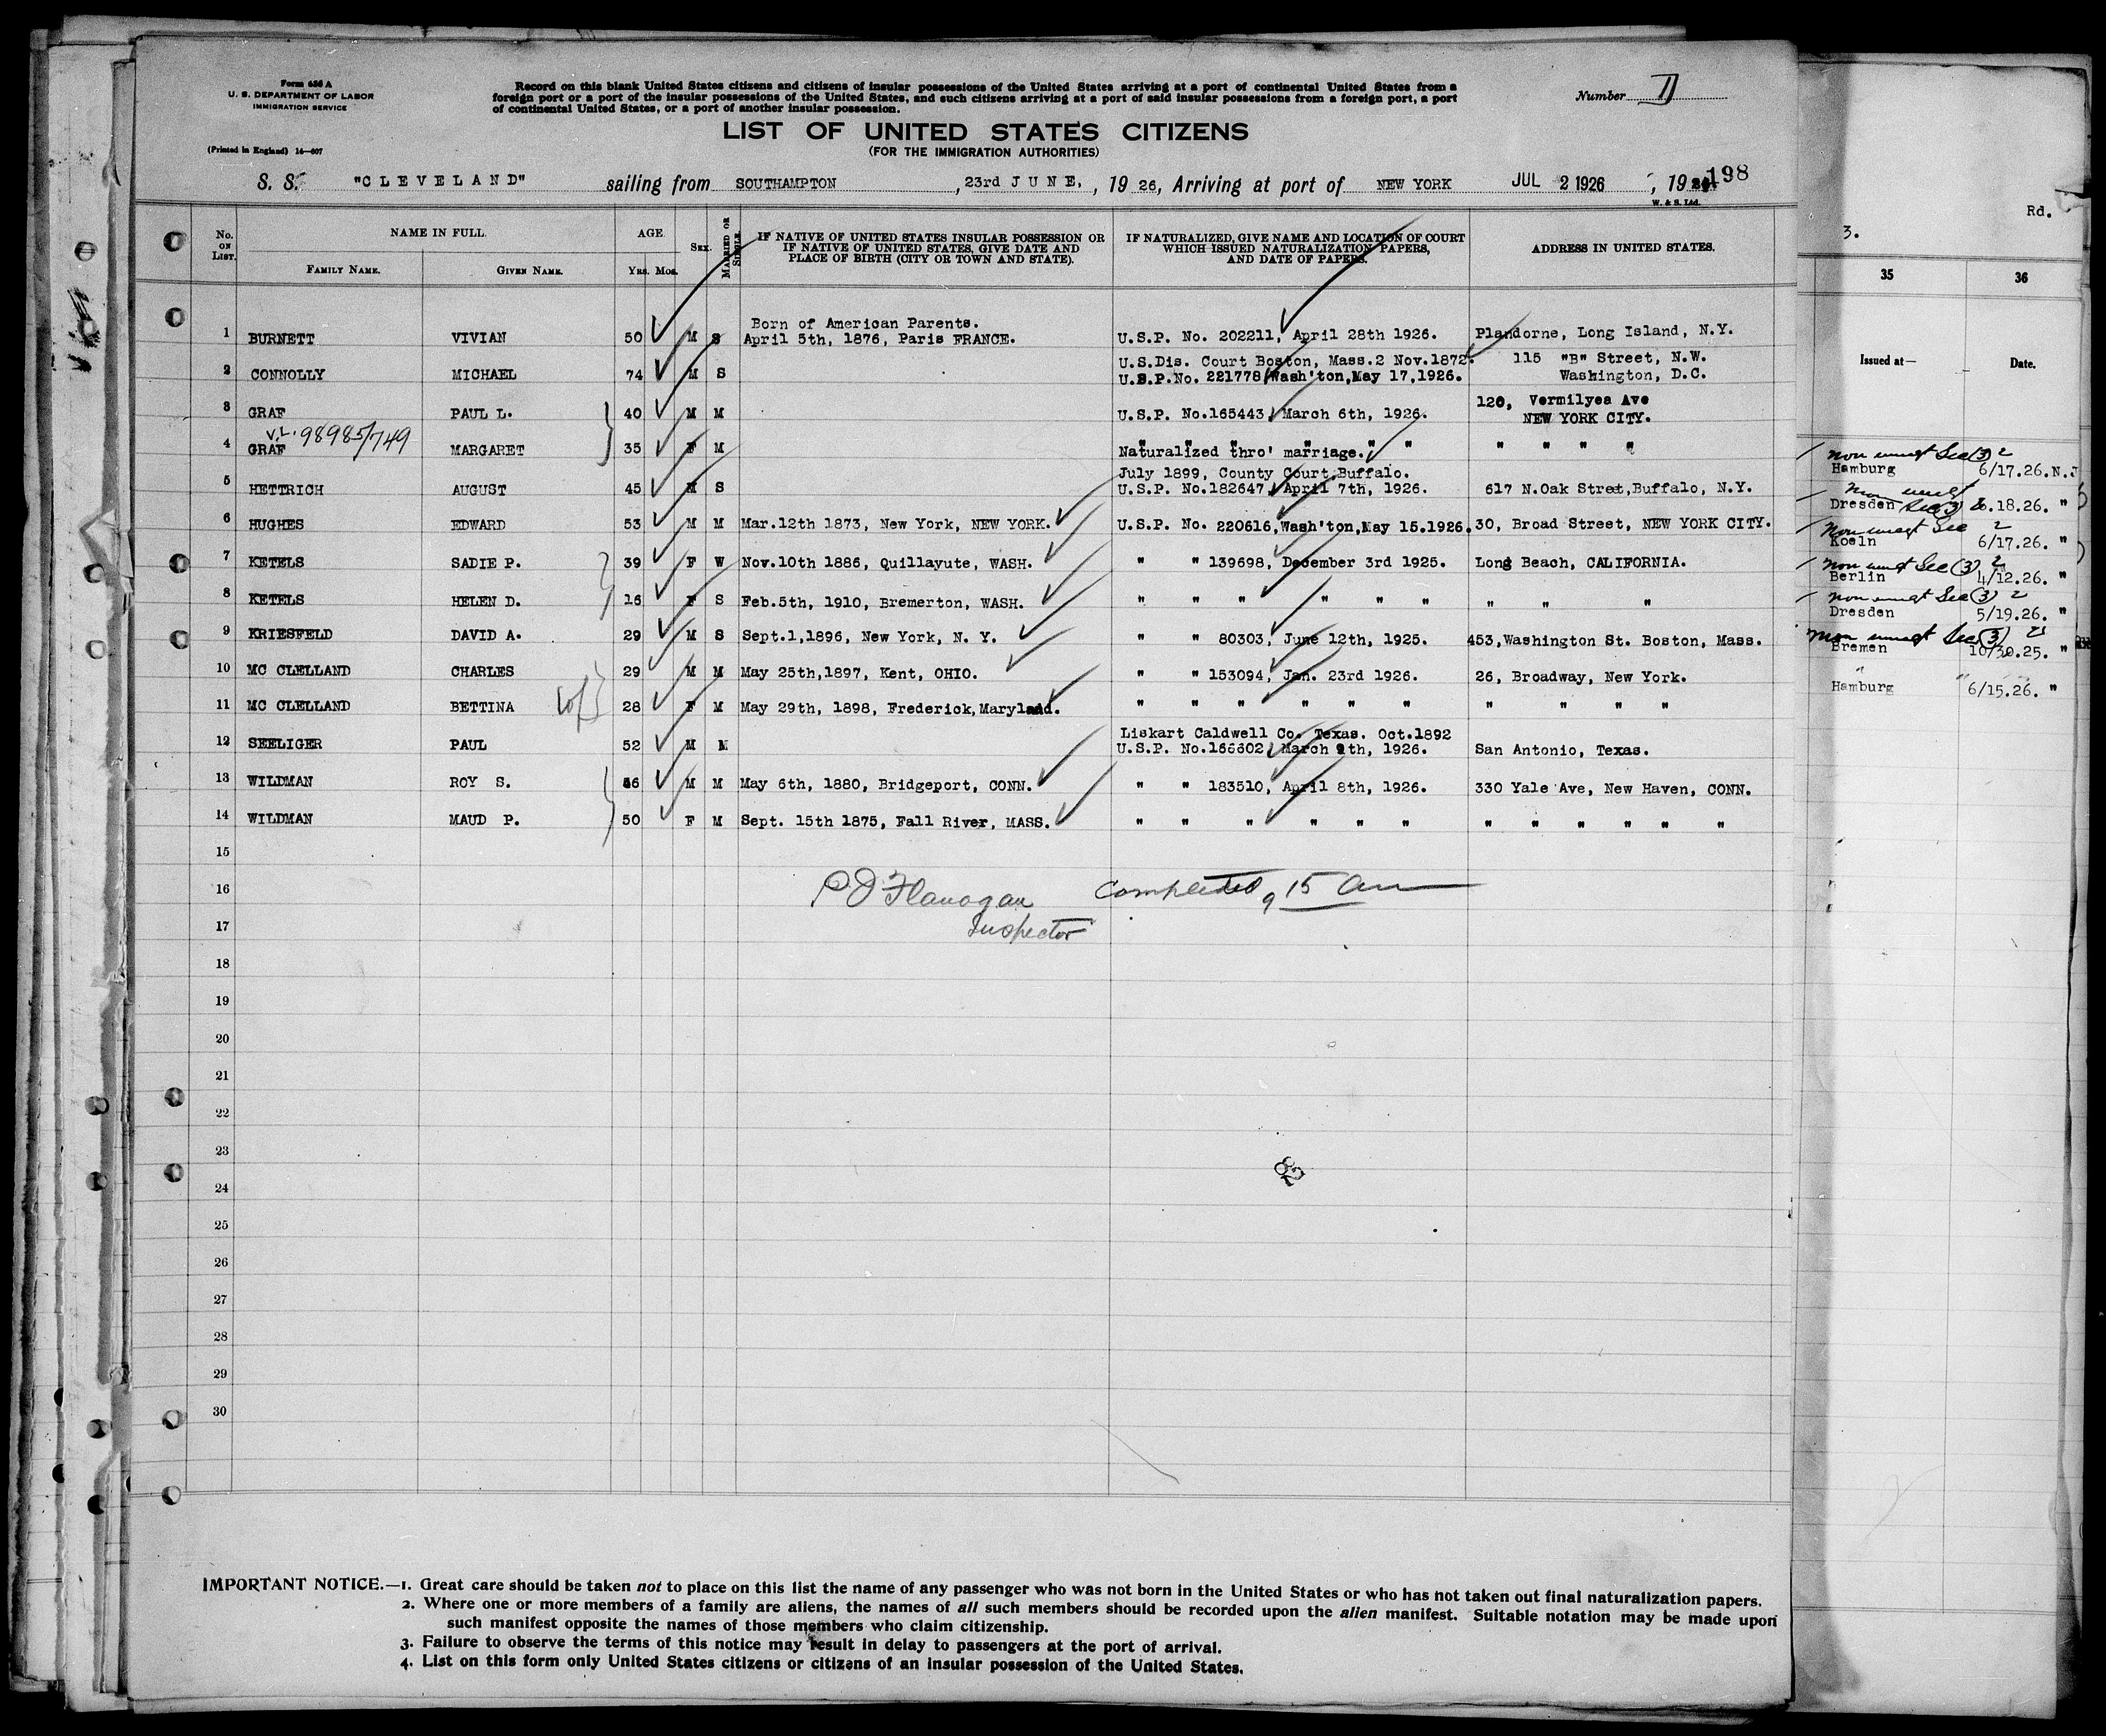 Form 636 A
U. S. DEPARTMENT OF LABOR
IMMIGRATION SERVICE
(Printed in England) 14—607
Record on this blank United States citizens and citizens of insular possessions of the United States arriving at a port of continental United States from a
foreign port or a port of the insular possessions of the United States, and such citizens arriving at a port of said insular possessions from a foreign port, a port
of continental United States, or a port of another insular possession.
Number
LIST OF UNITED STATES CITIZENS
(FOR THE IMMIGRATION AUTHORITIES)
S. S. "CLEVELAND" sailing from SOUTHAMPTON, 23rd JUNE, , 19 26, Arriving at port of NEW YORK JUL 2 1926 , 19 198
W. & S. Ltd.
No. ON LIST. NAME IN FULL. AGE. SEX. MARRIED OR SINGLE. IF NATIVE OF UNITED STATES INSULAR POSSESSION OR IF NATIVE OF UNITED STATES, GIVE DATE AND PLACE OF BIRTH (CITY OR TOWN AND STATE). IF NATURALIZED, GIVE NAME AND LOCATION OF COURT WHICH ISSUED NATURALIZATION PAPERS, AND DATE OF PAPERS. ADDRESS IN UNITED STATES.
FAMILY NAME. GIVEN NAME. Yrs. Mos.
Born of American Parents.
1 BURNETT VIVIAN 50 M S April 5th, 1876, Paris FRANCE. U.S.P. No. 202211, April 28th 1926. Plandorne, Long Island, N.Y.
U.S.Dis. Court Boston, Mass.2 Nov.1872. 115 "B" Street, N.W.
2 CONNOLLY MICHAEL 74 M S U.S.P.No. 221778,Wash'ton,May 17,1926. Washington, D.C.
120, Vermilyea Ave
3 GRAF PAUL L. 40 M M U.S.P. No.165443, March 6th, 1926. NEW YORK CITY.
V.L. 98985/749
" " " " " "
4 GRAF MARGARET 35 F M Naturalized thro' marriage. " " " "
July 1899, County Court Buffalo.
5 HETTRICH AUGUST 45 M S U.S.P. No.182647, April 7th, 1926. 617 N.Oak Street,Buffalo, N.Y.
6 HUGHES EDWARD 53 M M Mar.12th 1873, New York, NEW YORK. U.S.P. No. 220616,Wash'ton,May 15.1926. 30, Broad Street, NEW YORK CITY.
7 KETELS SADIE P. 39 F W Nov.10th 1886, Quillayute, WASH. " " 139698, December 3rd 1925. Long Beach, CALIFORNIA.
8 KETELS HELEN D. 16 F S Feb.5th, 1910, Bremerton, WASH. " " " " " " " " "
9 KRIESFELD DAVID A. 29 M S Sept.1,1896, New York, N. Y. " " 80303, June 12th, 1925. 453,Washington St. Boston, Mass.
10 MC CLELLAND CHARLES 29 M M May 25th,1897, Kent, OHIO. " " 153094, Jan. 23rd 1926. 26, Broadway, New York.
11 MC CLELLAND BETTINA 28 F M May 29th, 1898, Frederick,Maryland. " " " " " " " " " "
Liskart Caldwell Co. Texas. Oct.1892
12 SEELIGER PAUL 52 M M U.S.P. No.166602, March 9th, 1926. San Antonio, Texas.
13 WILDMAN ROY S. 46 M M May 6th, 1880, Bridgeport, CONN. " " 183510, April 8th, 1926. 330 Yale Ave, New Haven, CONN.
14 WILDMAN MAUD P. 50 F M Sept. 15th 1875, Fall River, MASS. " " " " " " " " " " " "
15
16 P J Flanagan Completed 9 15 am
17 Inspector
18
19
20
21
22
23
24
25
26
27
28
29
30
IMPORTANT NOTICE.—1. Great care should be taken not to place on this list the name of any passenger who was not born in the United States or who has not taken out final naturalization papers.
2. Where one or more members of a family are aliens, the names of all such members should be recorded upon the alien manifest. Suitable notation may be made upon
such manifest opposite the names of those members who claim citizenship.
3. Failure to observe the terms of this notice may result in delay to passengers at the port of arrival.
4. List on this form only United States citizens or citizens of an insular possession of the United States.
Rd.
3.
35 36
Issued at— Date.
non immgt Sec (3) 2
Hamburg 6/17.26.N.J
non immgt
Dresden Sec (3) 6.18.26. "
non immgt Sec 2
Koeln 6/17.26. "
non immgt Sec (3) 2
Berlin 4/12.26. "
non immgt Sec (3) 2
Dresden 5/19.26. "
non immgt Sec (3) 2
Bremen 10/30.25. "
Hamburg 6/15.26. "